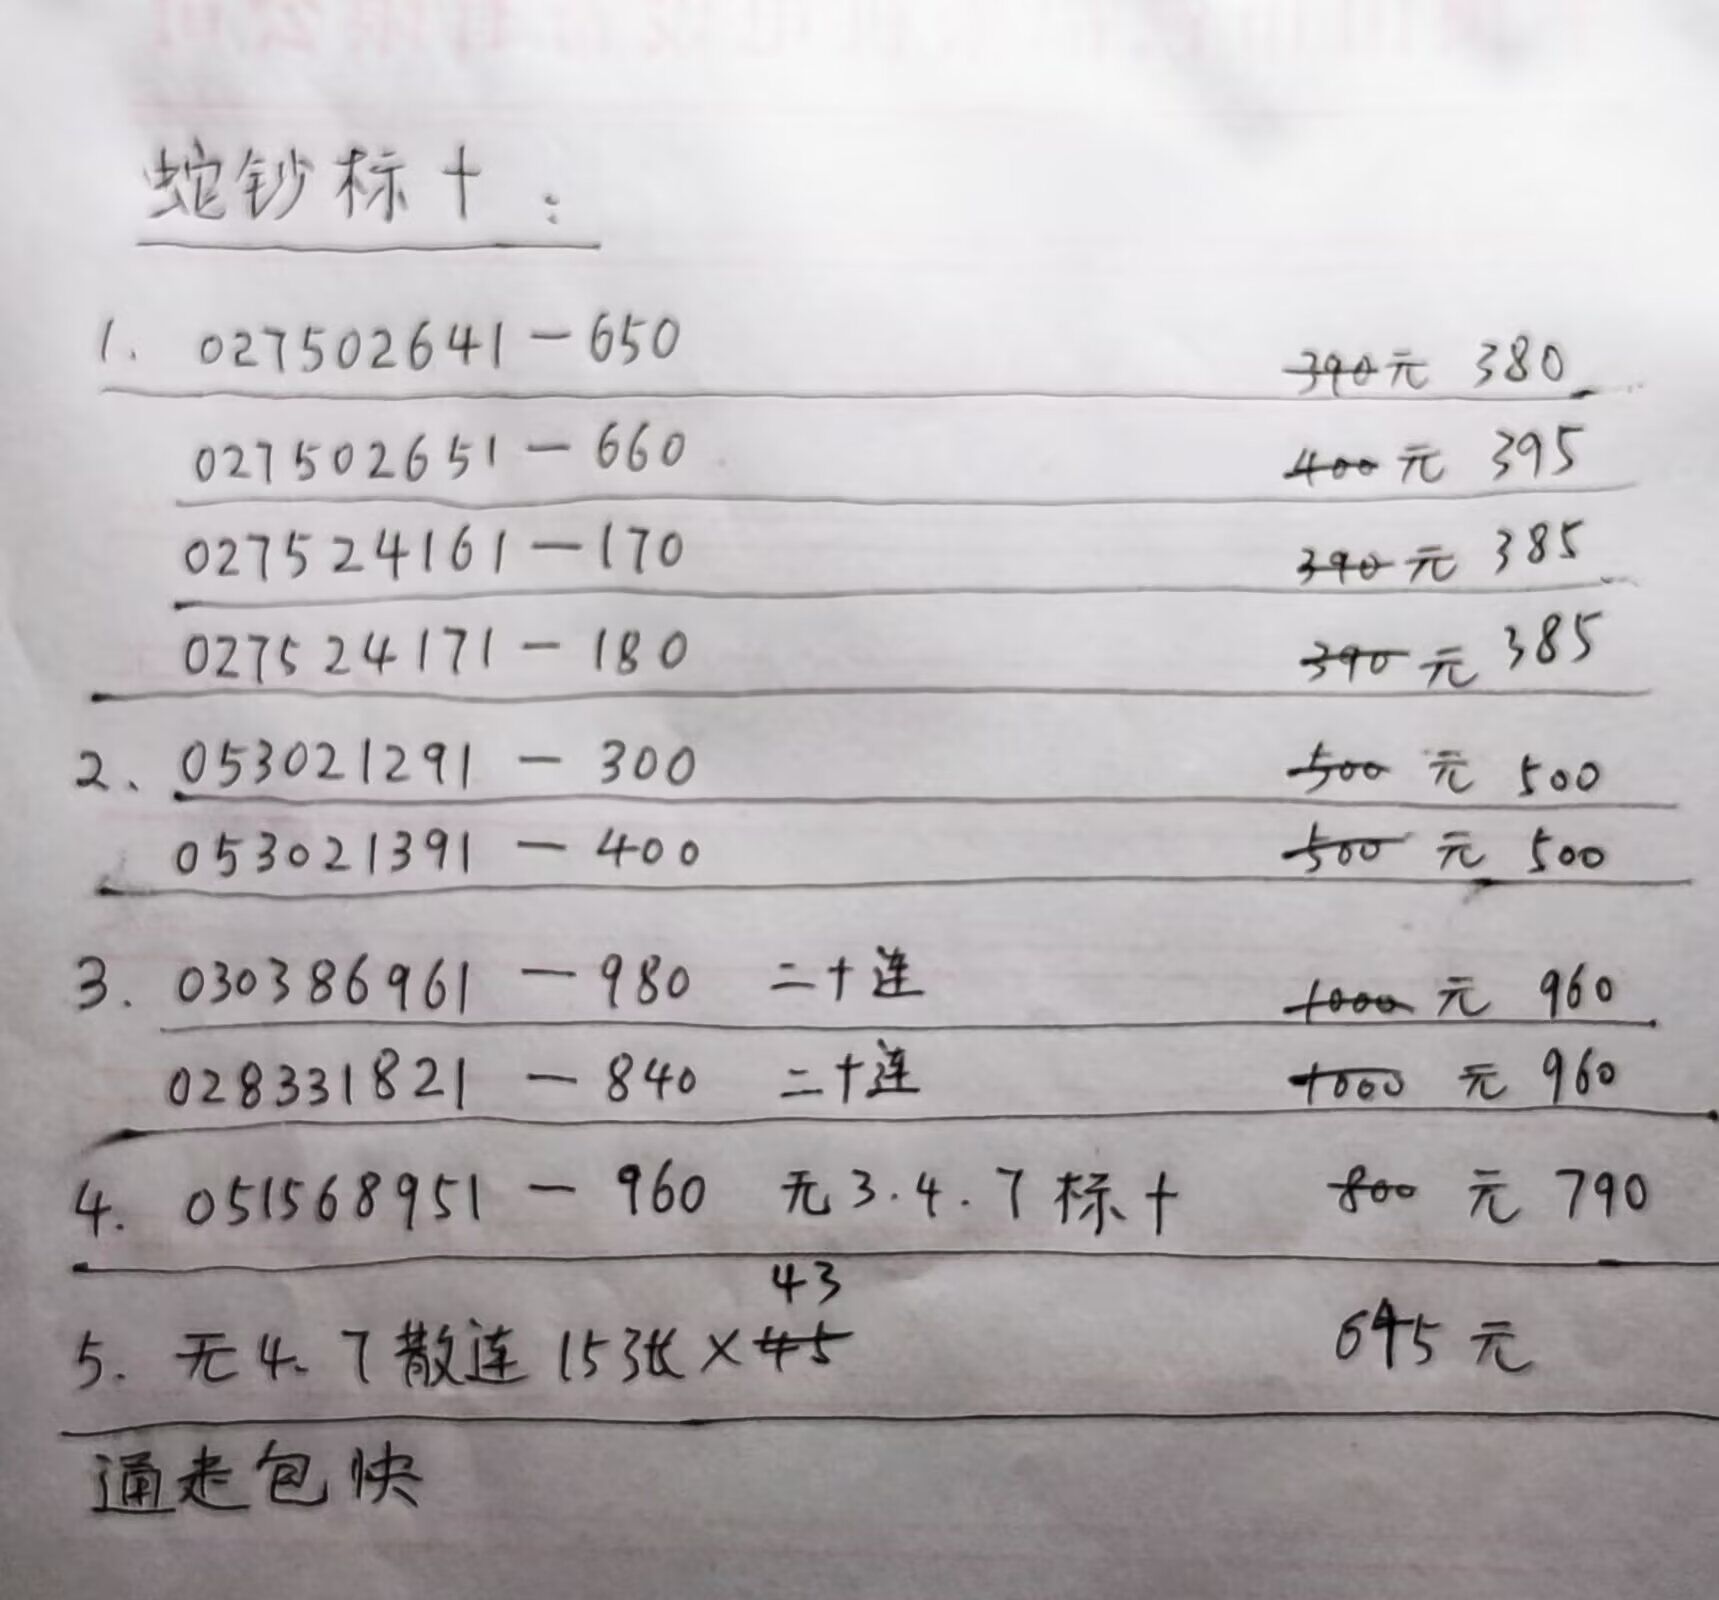 蛇钞标十：
1. 027502641－650 390元 380
027502651－660 400元 395
027524161－170 390元 385
027524171－180 390元 385
2、053021291－300 500元 500
053021391－400 500元 500
3. 030386961－980 二十连 1000元 960
028331821－840 二十连 1000元 960
4. 051568951－960 无3.4.7标十 800元 790
43
5. 无4、7散连15张×45 645元
通走包快